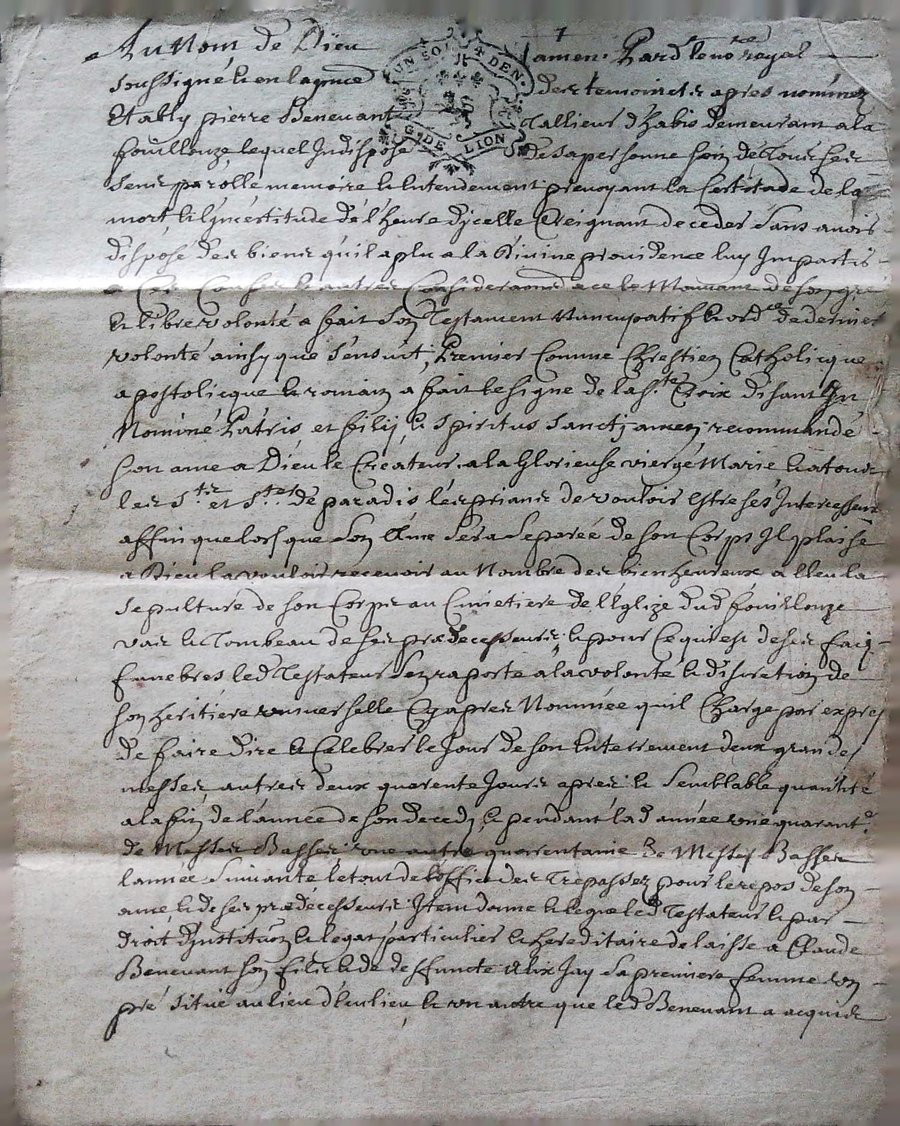 Au Nom de Dieu amen. Pard.t no.re royal
soussigné et en la p.nce des temoins cy apres nommez
Estably pierre Benevant Tallieur d'habis demeurant a la
fouillouze, lequel Indisposé de sa personne sain de tous ses
sens parolle memoire et Entendement prevoyant la Certitude de la
mort, et l'Incertitude de l'heure d'ycelle Creignant deceder sans avoir
disposé des biens qu'il a plu a la Divine providence luy Impartir
a Ces Causes et autres Consideraons a ce le Mouvant de son gré
et libre volonté a fait son Testament Nuncupatif et ord.ce de derniere
volonté ainsy que s'ensuit, Premier Comme Chrestien Catholicque
apostolicque et romain a fait le signe de la s.te Croix disant In
Nominé Patris et filij, et spiritus Sanctj amen, recommandé
son ame a Dieu le Createur a la Glorieuse vierge Marie et a tous
les S.ts et S.tes de paradis les priant de vouloir estre ses Intercesseurs
affin que lors que son Ame sera separée de son Corps Il plaise
a Dieu la vouloir recevoir au Nombre des bien heureux a Eleu la
sepulture de son Corps au Cimetiere de l'Eglize dud fouillouze
vas et Tombeau de ses prædecesseurs, et pour Ce qui est de ses fraiz
funebres led Testateur s'en raporte a la volonté et discretion de
son heritiere universelle Cy apres Nommée qu'il Charge par expres
de faire dire et Celebrer le Jour de son Enterrement deux grandes
messes autres deux quarente Jours apres et semblable quantité
a la fin de l'année de son deceds, et pendant lad année une quarant.e
de Messes Basses, une autre quarentaine de Messes Basses
l'année suivante le tout de l'office des Trepassez pour le repos de son
ame, et de ses prædecesseurs, Item donne et legue led Testateur et par
droit d'Instituon et legat particulier et hereditaire delaisse a Claude
Benevant son filz et de deffuncte Alix Jay sa premiere femme un
pré situé au lieu d'Eulieu, et un autre que led Benevant a acquis
UN SOL 4 DEN.
G. DE LION